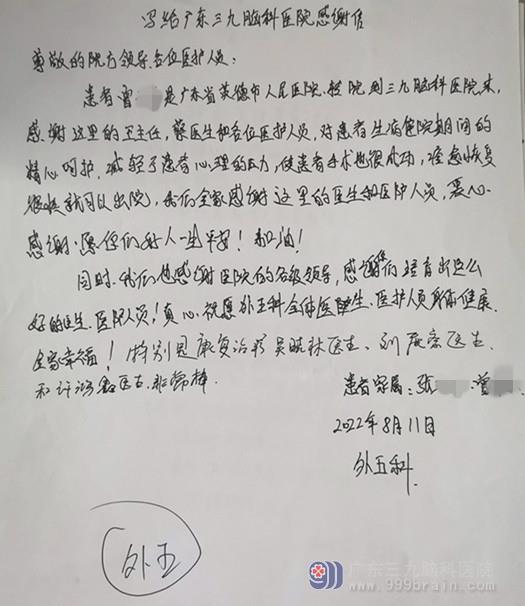 写给广东三九脑科医院感谢信
尊敬的院方领导.各位医护人员:
患者曾 是广东省英德市人民医院.转院到三九脑科医院来,
感谢这里的卫主任,蔡医生和各位医护人员,对患者生病住院期间的
精心呵护.减轻了患者心理的压力,使患者手术也很成功,痊愈恢复
很快就可以出院,我们全家感谢这里的医生和医护人员,衷心.
感谢.愿你们好人一生平安!加油!
同时.我们也感谢医院的各级领导,感谢你们培育出这么
好的医生.医护人员!真心祝愿外五科全体医生.医护人员身体健康.
全家幸福!特别是康复治疗吴晓林医生、刘 医生
和许 医生.非常棒.
患者家属:张 曾
2022年8月11日
外五科.
外五
广东三九脑科医院
www.999brain.com